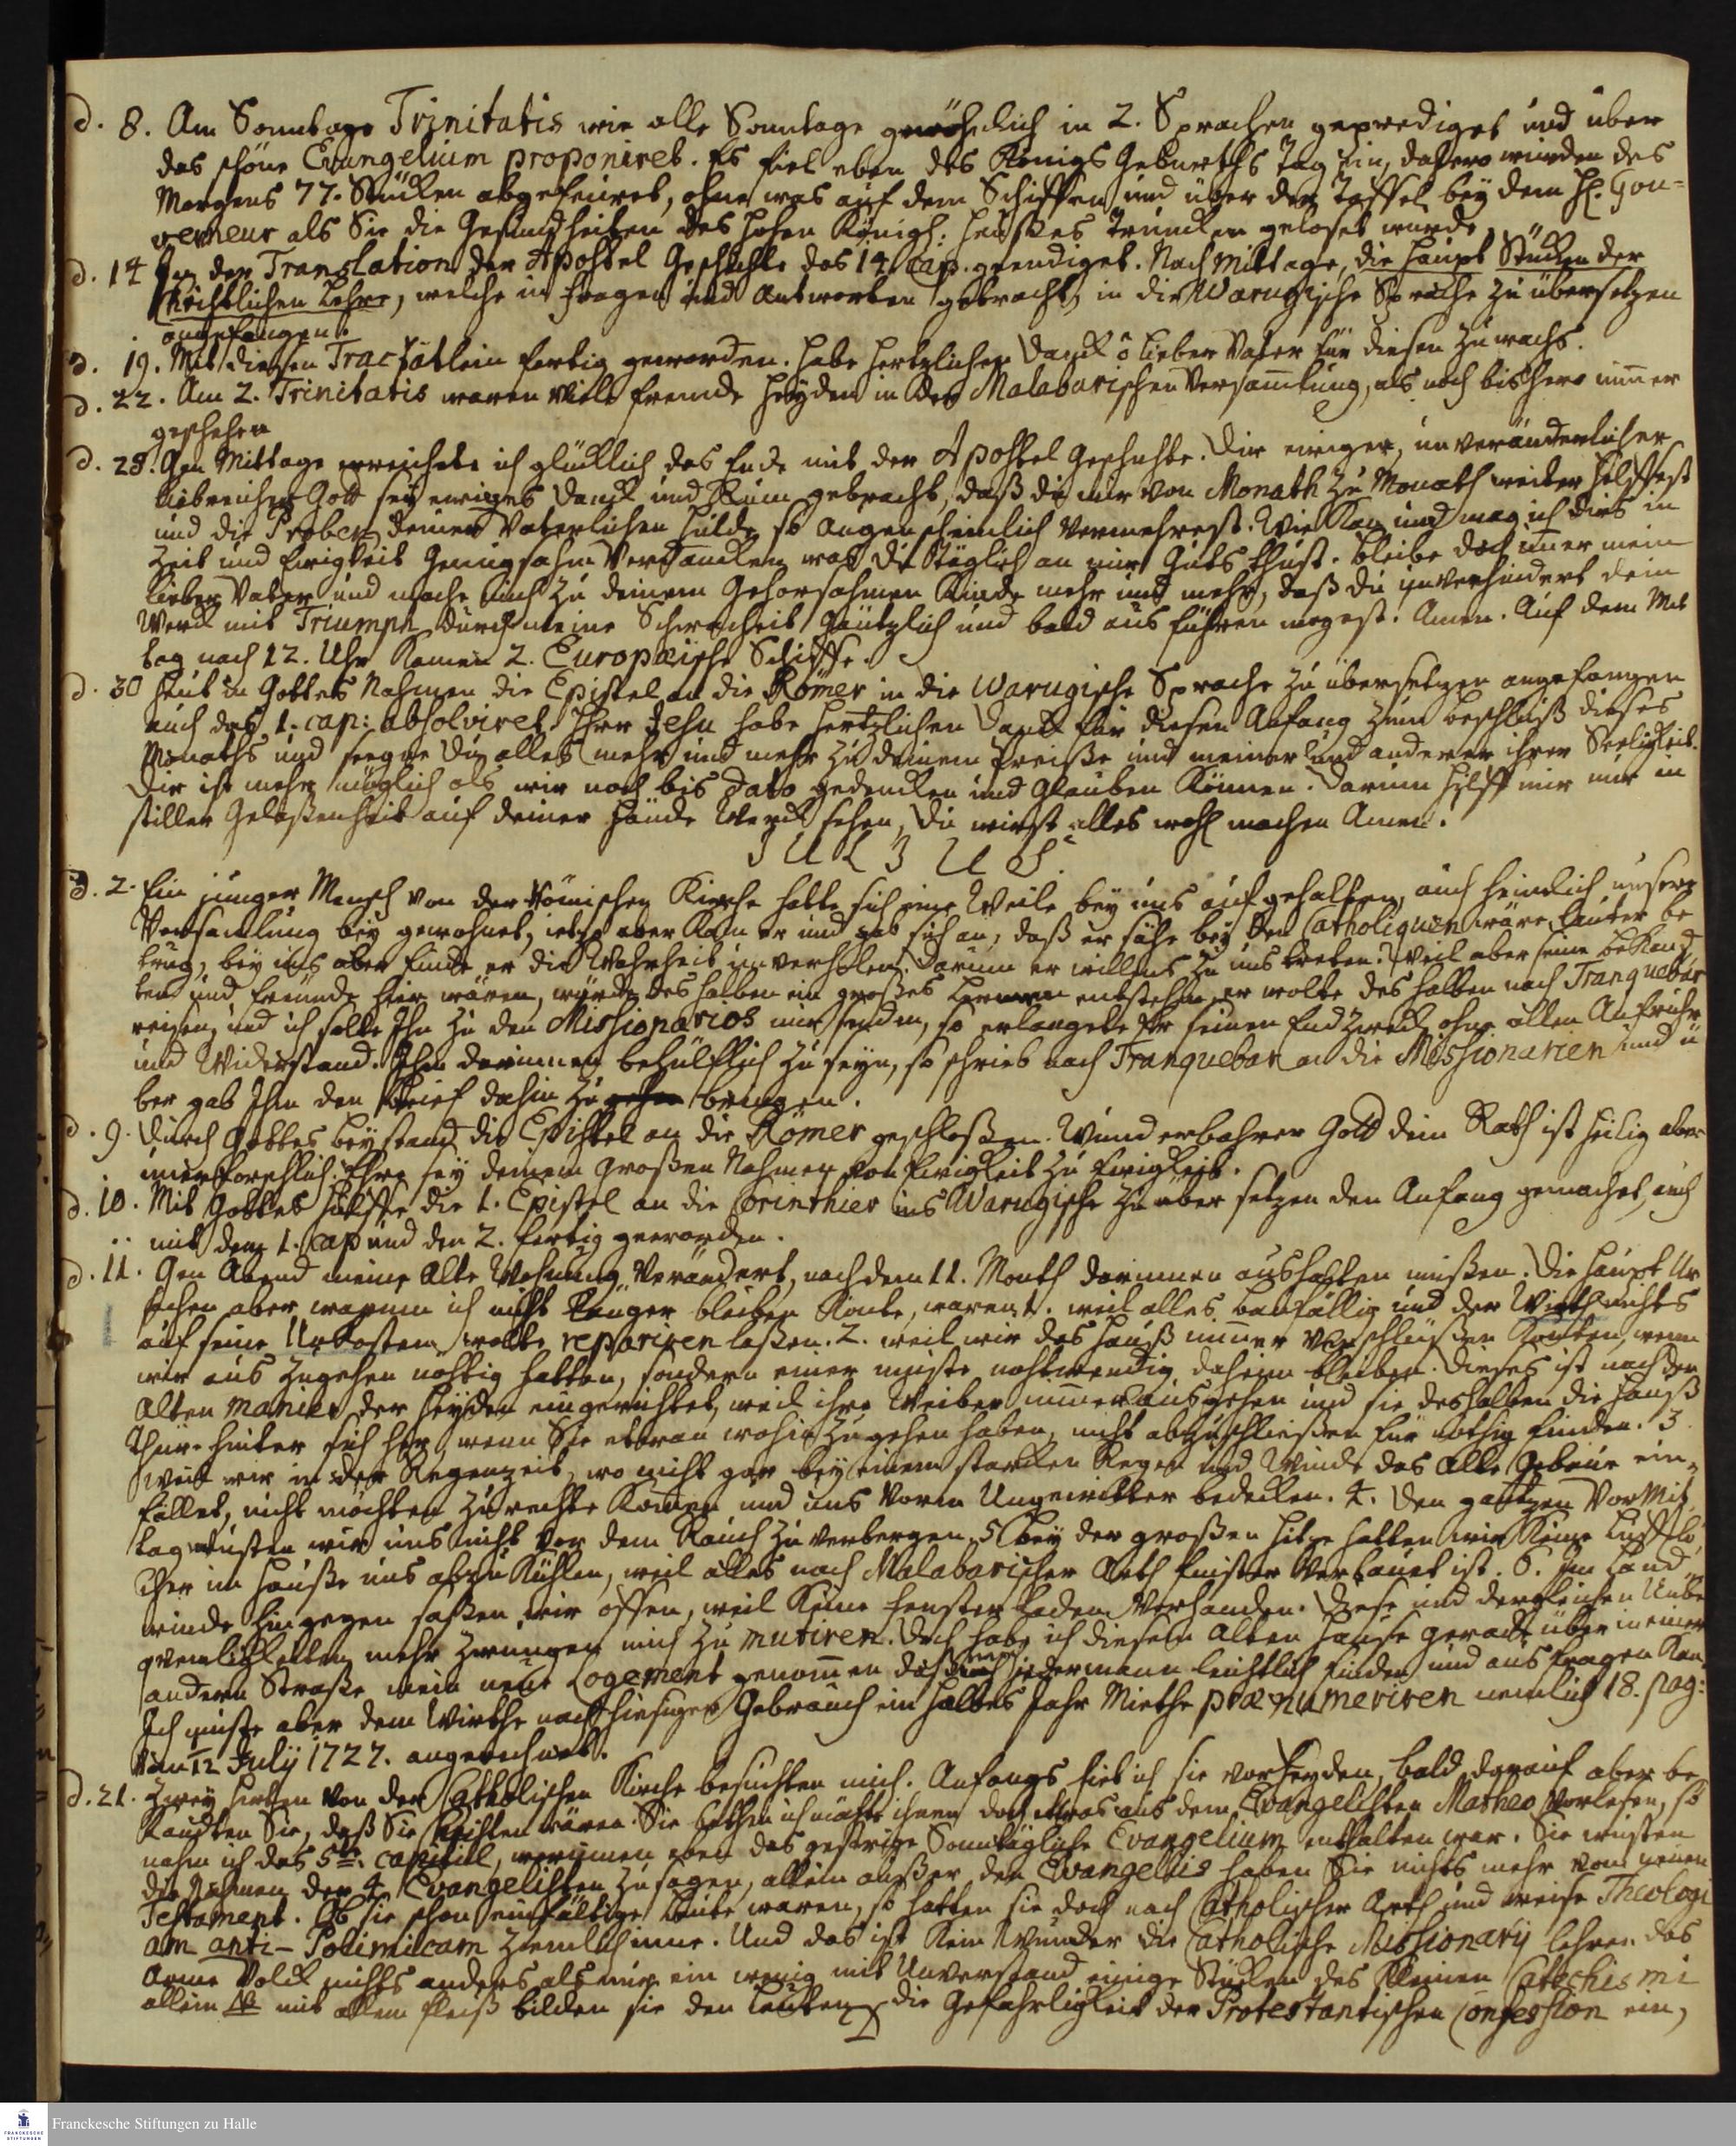 d. 8. Am Sonntage Trinitatis wie alle Sonntage gewöhnlich in 2. Sprachen geprediget und über
das schöne Evangelium proponiret. Es fiel eben des Königs Geburths Tag ein, dahero wurden des
Morgens 77. Stücken abgefeuret, ohne was auf dem Schiffen und über der Taffel bey dem H. Gou=
verneur als Sie die Gesundheiten des hohen Königl: Hauses Truncken geloset wurde.
d. 14 In der Translation der Apostel Geschichte das 14. Cap. geendiget. Nach Mittage, die Haupt Stücken der
Christlichen Lehre, welche in Fragen und Antworten gebracht, in die Warugische Sprache zu übersetzen
angefangen.
d. 19. Mit diesen Tractätlein fertig geworden. Habe hertzlichen Danck ô lieber Vater für diesen Zuwachs.
d. 22. Am 2. Trinitatis waren viele fremde Heyden in der Malabarischen Versamlung, als noch bishero nimer
geschehen
d. 29. Gen Mittage erreichete ich glücklich das Ende mit der Apostel Geschichte. Dir ewiger, unveränderlicher
liebreicher Gott sey ewiges Danck und Ruhm gebracht, daß du mir von Monath zu Monath weiter hilffest
und die Proben deiner Vaterlichen Hulde so augenscheinlich vermehrest. Wie kan und mag ich dirs in
Zeit und Ewigkeit genugsahm verdancken was du täglich an mir Guts thust. Bleibe doch imer mein
lieber Vater und mache mich zu deinem gehorsahmen Kinde mehr und mehr, daß du ungehindert dein
Werck mit Triumph durch meine Schwacheit gäntzlich und bald aus führen mogest. Amen. Auf dem Mit
tag nach 12. Uhr kamen 2. Europæische Schiffe.
d. 30 Heut in Gottes Nahmen die Epistel an die Römer in die Warugische Sprache zu übersetzen angefangen
auch das 1. cap: absolviret. Herr Jesu habe hertzlichen Danck für diesen Anfang zum Beschluß dieses
Monaths und seegne du alles mehr und mehr zu deinem Preiße und meiner und anderer ihrer Seeligkeit.
Dir ist mehr möglich als wir noch bis dato gedencken und glauben können. Darum hilff mir nur in
stiller Gelaßenheit auf deiner Hände Werck sehen, du wirst alles wohl machen Amen.
JULIUS.
d. 2. Ein junger Mensch von der Römischen Kirche hatte sich eine Weile bey uns aufgehalten, auch heimlich unsere
Versamlung bey gewohnet, ietzo aber kam er und gab sich an, daß er sähe bey den Catholiquen wäre lauter be
trug, bey uns aber finde er die Wahrheit unverholen. Darum er willens zu uns treten. Weil aber seine bekand
ten und freunde hier wären, würde deshalben ein großes Lermen entstehen, er wolte deshalben nach Tranquebar
reisen, und ich solte Ihn zu den Missionarios nur senden, so erlangete Er seinen Endzweck ohne allen Aufruhr
und Widerstand. Ihm darinnen behülflich zu seyn, so schrieb nach Tranquebar an die Missionarien und ü
ber gab Ihm den Brief dahin zu bringen.
d. 9. Durch Gottes Beystand die Epistel an die Römer geschloßen. Wunderbahrer Gott dein Rath ist heilig aber
unerforschlich. Ehre sey deinem großen Nahmen von Ewigkeit zu Ewigkeit.
d. 10. Mit Gottes Hülffe die 1. Epistel an die Corinthier ins Warugische zu über setzen den Anfang gemachet, auch
mit dem 1. Cap und den 2. fertig geworden.
d. 11. Gen Abend meine Alte Wohnung verändert, nach dem 11. Month darinnen aushalten müßen. Die Haupt Ur
sachen aber warum ich nicht länger bleiben konte, waren 1. weil alles baufällig und der Wirth nichts
auf seine Unkosten wolte repariren laßen. 2. weil wir das Hauß nimer verschlüßen konten, wenn
wir aus zugehen nöhtig hatten, sondern einer muste nohtwendig daheim bleiben. Dieses ist nach der
Alten manier der Heyden eingerichtet, weil ihre Weiber nimer ausgehen und sie deshalben die Hauß
Thür hinter sich her, wenn Sie etwan wohin zugehen haben, nicht abzuschließen für nothig finden. 3
Weil wir in der Regenzeit, wo nicht gar bey einem starcken Regen und Winde das alte Gebäue ein=
fället, nicht möchten zurechte kommen und uns vorm Ungewitter bedecken. 4. Den gantzen Vor Mit
tag wusten wir uns nicht vor dem Rauch zu verbergen. 5. bey der großen Hitze hatten wir keine Lufftlö
cher im Hauße uns abzukühlen, weil alles nach Malabarischer Arth finster verbauet ist. 6. Im Land
winde hingegen saßen wir offen, weil keine Fensterladen verhanden. Diese und dergleichen Unbe
qvemlichkeiten mehr zwungen mich zu mutiren. Doch habe ich diesem alten Hause gerade über in einer
andern Straße mein neue Logement genommen daß mich jedermann leichtlich finden und aus fragen kan.
Ich muste aber dem Wirthe nach hiesigen Gebrauch ein halbes Jahr Miethe prænumeriren nemlich 18. pag:
vom 12 Julÿ 1727. angerechnet.
d. 21. Zwey Hirten von der Catholischen Kirche besuchten mich. Anfangs hielt ich sie vor Heyden, bald darauf aber be
kandten Sie, daß Sie Christen wären. Sie bathen ich möchte ihnen doch etwas aus dem Evangelisten Matheo vorlesen, so
nahm ich das 5te. capitul, worinnen eben das gestrige Sonntägliche Evangelium enthalten war. Sie wusten
die Nahmen der 4 Evangelisten zu sagen, allein außer den Evangeliis haben Sie nichts mehr vom neuen
Testament. Ob sie schon einfältige Leute waren, so hatten sie doch nach Catholischer Arth und weise Theologi
am anti-Polimicam ziemlich inne. Und das ist kein Wunder die Catholische Missionarÿ lehren das
arme Volck nichts anders als nur ein wenig mit Unverstand einige Stücken des kleinen Catechismi
allein NB mit allem fleiß bilden sie den Leuten die Gefahrligkeit der Protestantischen Confession ein,
Franckesche Stiftungen zu Halle